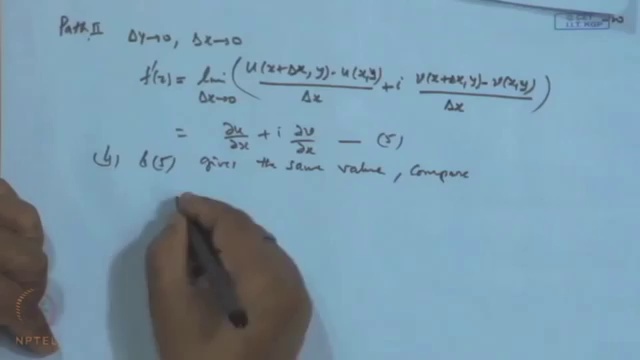 Path II Δy→0, Δx→0
f'(z) = lim Δx→0 ( u(x+Δx, y) - u(x,y) / Δx + i v(x+Δx, y) - v(x,y) / Δx )
= ∂u/∂x + i ∂v/∂x — (5)
(4) & (5) gives the same value, compare
NPTEL